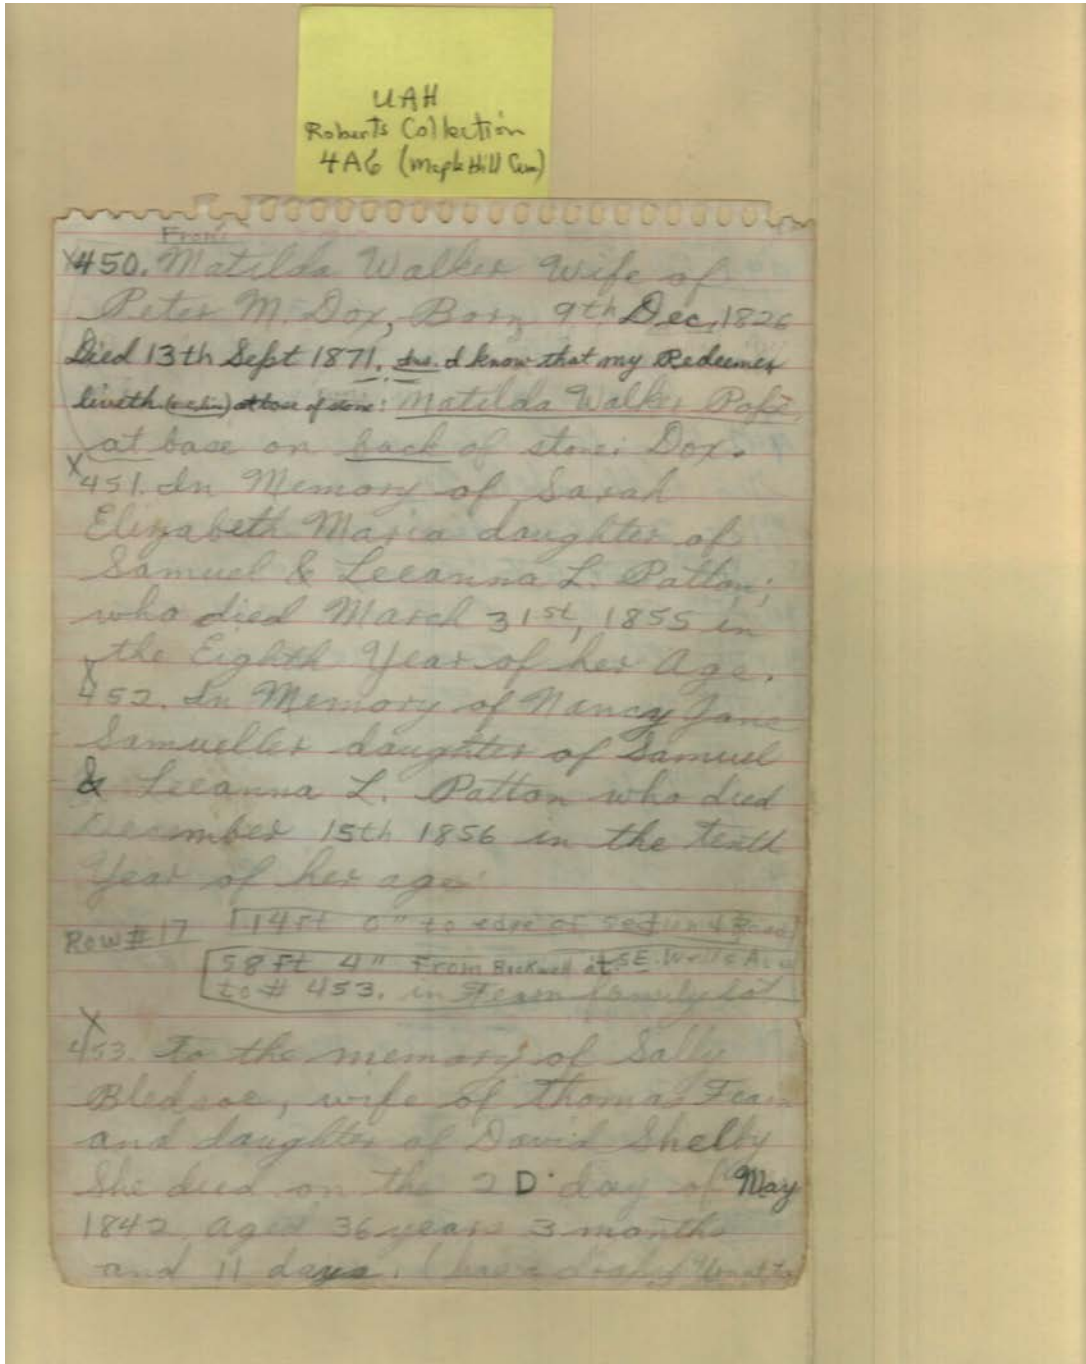 UAH
Roberts Collection
4A6 (Maple Hill Cem)
Front
X450. Matilda Walker Wife of
Peter M. Dox, Born 9th Dec, 1826
Died 13th Sept 1871. Ins. I know that my Redeemer
liveth at base of stone: Matilda Walker Pope,
at base on back of stone: Dox.
X
451. In Memory of Sarah
Elizabeth Maria daughter of
Samuel & Leeanna L. Patton;
who died March 31st, 1855 in
the Eighth Year of her Age.
X
452. In Memory of Nancy Jane
Samueller daughter of Samuel
& Leeanna L. Patton who died
December 15th 1856 in the tenth
Year of her age.
Row #17 14ft 0" to edge of Section 4 Road
58 ft 4" From Rockwall at SE. Wells Ave
to # 453. in Fearn family lot
X
453. To the memory of Sally
Bledsoe, wife of Thomas Fearn
and daughter of David Shelby
She died on the 2D. day of May
1842 aged 36 years 3 months
and 11 days.